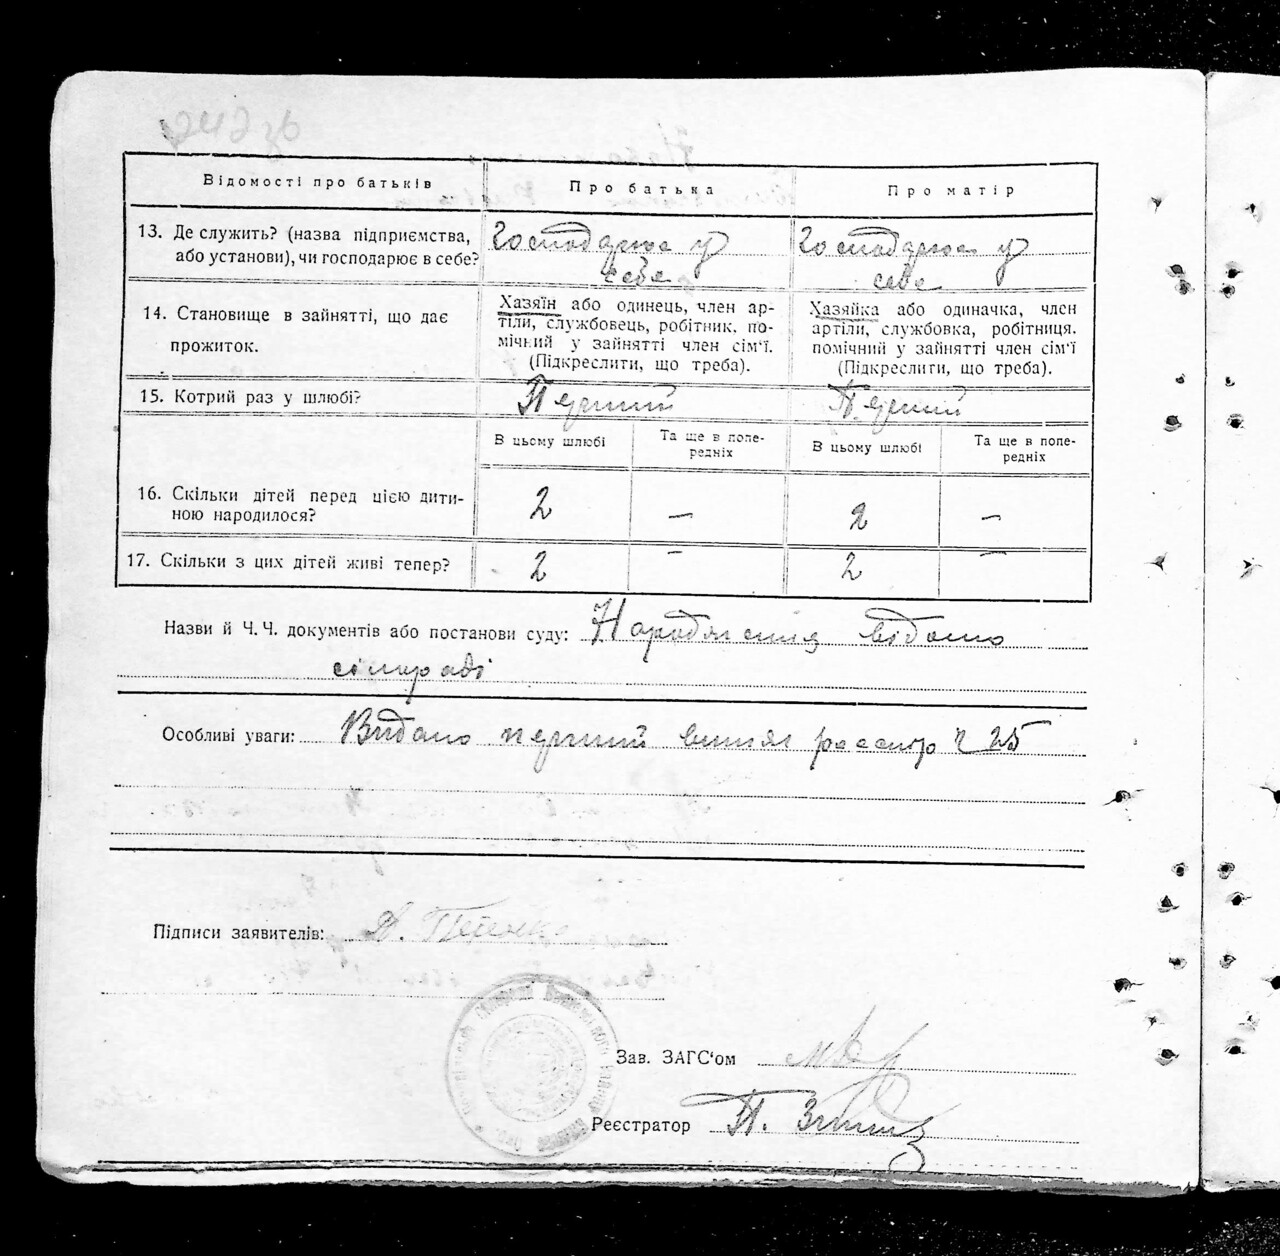 242 зв
Відомості про батьків
Про батька
Про матір
13. Де служить? (назва підприємства,
або установи), чи господарює в себе?
Господарює у
себе
Господарює у
себе
14. Становище в зайнятті, що дає
прожиток.
Хазяїн або одинець, член ар-
тіли, службовець, робітник. по-
мічний у зайнятті член сім'ї.
(Підкреслити, що треба).
Хазяйка або одиначка, член
артіли, службовка, робітниця.
помічний у зайнятті член сім'ї
(Підкреслити, що треба).
15. Котрий раз у шлюбі?
Перший
Перший
В цьому шлюбі
Та ще в попе-
редніх
В цьому шлюбі
Та ще в попе-
редніх
16. Скільки дітей перед цією дити-
ною народилося?
2
—
2
—
17. Скільки з цих дітей живі тепер?
2
—
2
—
Назви й Ч. Ч. документів або постанови суду: Народження відомо
сільраді
Особливі уваги: Видано перший ч 25
Підписи заявителів:
Зав. ЗАГС'ом
Реєстратор П.